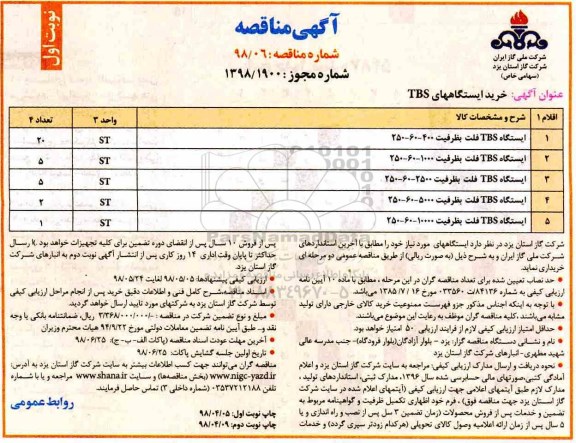 نوبت اول
آگهی مناقصه
شماره مناقصه: ۹۸/۰۶
شماره مجوز: ۱۳۹۸/۱۹۰۰
شرکت ملی گاز ایران
شرکت گاز استان یزد
(سهامی خاص)
عنوان آگهی: خرید ایستگاههای TBS
اقلام ۱ شرح و مشخصات کالا واحد ۳ تعداد ۴
۱ ایستگاه TBS فلت بظرفیت ۴۰۰-۶۰-۲۵۰ ST ۲۰
۲ ایستگاه TBS فلت بظرفیت ۱۰۰۰-۶۰-۲۵۰ ST ۵
۳ ایستگاه TBS فلت بظرفیت ۲۵۰۰-۶۰-۲۵۰ ST ۵
۴ ایستگاه TBS فلت بظرفیت ۵۰۰۰-۶۰-۲۵۰ ST ۲
۵ ایستگاه TBS فلت بظرفیت ۱۰۰۰۰-۶۰-۲۵۰ ST ۱
شرکت گاز استان یزد در نظر دارد ایستگاههای مورد نیاز خود را مطابق با آخرین استانداردهای
شرکت ملی گاز ایران و به شرح ذیل (به صورت ریالی) از طریق مناقصه عمومی دو مرحله ای
خریداری نماید.
حد نصاب تعیین شده برای تعداد مناقصه گران در این مرحله، مطابق با ماده ۱۰ آیین نامه
ارزیابی کیفی به شماره ۸۴۱۳۶/ت ۳۳۵۶۰ مورخ ۱۶/۷/۱۳۸۵ می باشد.
با توجه به اینکه اجناس مذکور جزو فهرست ممنوعیت خرید کالای خارجی دارای تولید
مشابه می‌باشند، کلیه مناقصه گران موظف به رعایت این موضوع می‌باشند.
حداقل امتیاز ارزیابی کیفی لازم از فرایند ارزیابی ۵۰ امتیاز خواهد بود.
نام و نشانی دستگاه مناقصه گزار: یزد – بلوار آزادگان(بلوار فرودگاه)- جنب مدرسه عالی
شهید مطهری- انبارهای شرکت گاز استان یزد
نحوه دریافت و ارسال مدارک ارزیابی کیفی: مراجعه به سایت شرکت گاز استان یزد و اعلام
آمادگی کتبی،صورتهای مالی حسابرسی شده سال ۱۳۹۶، مدارک ثبتی، استانداردهای تولید ،
مدارک لازم طبق آیتمهای اعلامی جهت ارزیابی کیفی (آیتمهای اعلام شده در سایت شرکت
گاز استان یزد جهت مناقصه فوق) ، فرم خود اظهاری تکمیل ظرفیت و گواهینامه مربوط به
تضمین و خدمات پس از فروش محصولات (زمان تضمین ۳ سال پس از نصب و راه اندازی و یا
۵ سال پس از زمان ارائه اعلامیه وصول کالای تحویلی (هرکدام زودتر سپری گردد) و خدمات
پس از فروش ۱۰ سال پس از انقضای دوره تضمین برای کلیه تجهیزات خواهد بود .) ارسال
حداکثر تا پایان وقت اداری ۱۴ روز کاری پس از انتشار آگهی نوبت دوم به انبارهای شرکت
گاز استان یزد
ارزیابی کیفی پیشنهادها: ۹۸/۰۵/۰۵ لغایت ۹۸/۰۵/۲۴
اسناد مناقصه،شرح کامل فنی و اطلاعات دقیق خرید پس از انجام مراحل ارزیابی کیفی
توسط شرکت گاز استان یزد به شرکتهای مورد تایید ارسال خواهد گردید.
مبلغ و نوع تضمین شرکت در مناقصه: ۳/۳۶۸/۰۰۰/۰۰۰/- ریال، ضمانتنامه بانکی یا وجه
نقد و.. طبق آیین نامه تضمین معاملات دولتی مورخ ۹۴/۹/۲۲ هیات محترم وزیران
آخرین مهلت عودت اسناد مناقصه (پاکات الف- ب- ج): ۹۸/۰۶/۲۵
تاریخ اولین جلسه گشایش پاکات: ۹۸/۰۶/۲۵
مناقصه گران می‌توانند جهت کسب اطلاعات بیشتر به سایت شرکت گاز استان یزد به آدرس:
www.nigc-yazd.ir (بخش مناقصه‌ها) و سایت www.shana.ir مراجعه و یا با شماره
تلفن ۰۳۵۳۷۲۱۲۱۸۸ (شماره داخلی ۳) تماس حاصل فرمایند.
چاپ نوبت اول: ۹۸/۰۴/۰۵
چاپ نوبت دوم: ۹۸/۰۴/۰۹
روابط عمومی
ParsNamadData